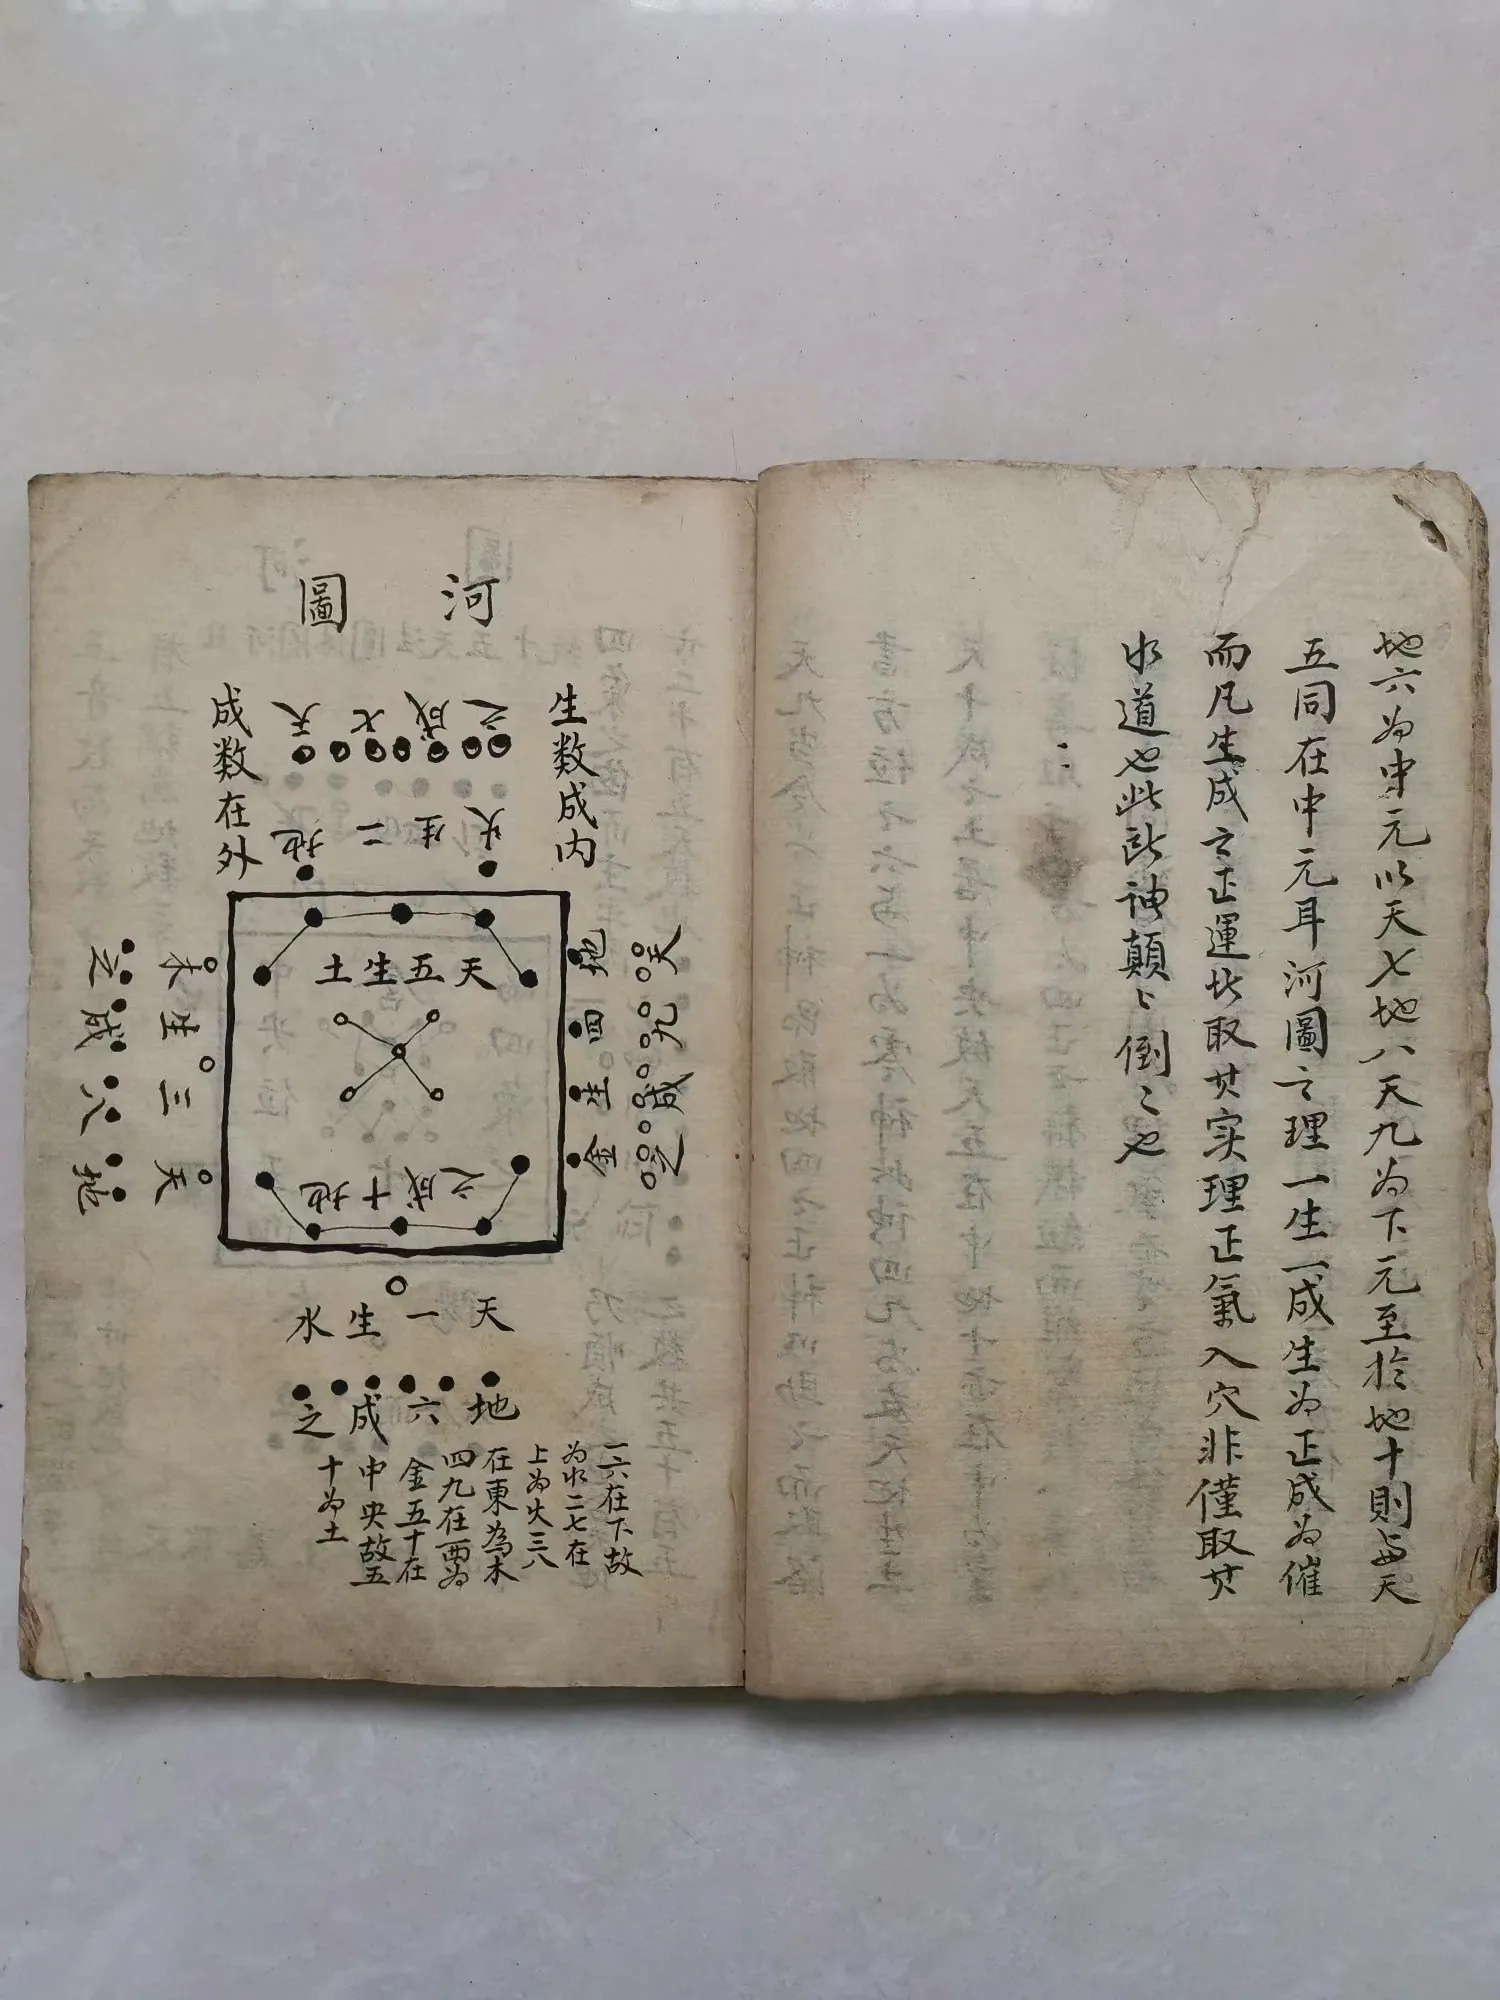 地六为中元以天七地八天九为下元至於地十則与天
五同在中元耳河圖之理一生一成生为正成为催
而凡生成之正運此取其实理正氣入穴非僅取其
水道也此訣神顛〻倒〻也
河圖
生数成内
成数在外
天七成之
地二生火
天五生土
地十成之
天三生木
地八成之
地四生金
天九成之
天一生水
地六成之
一六在下故
为水二七在
上为火三八
在東為木
四九在西为
金五十在
中央故五
十为土